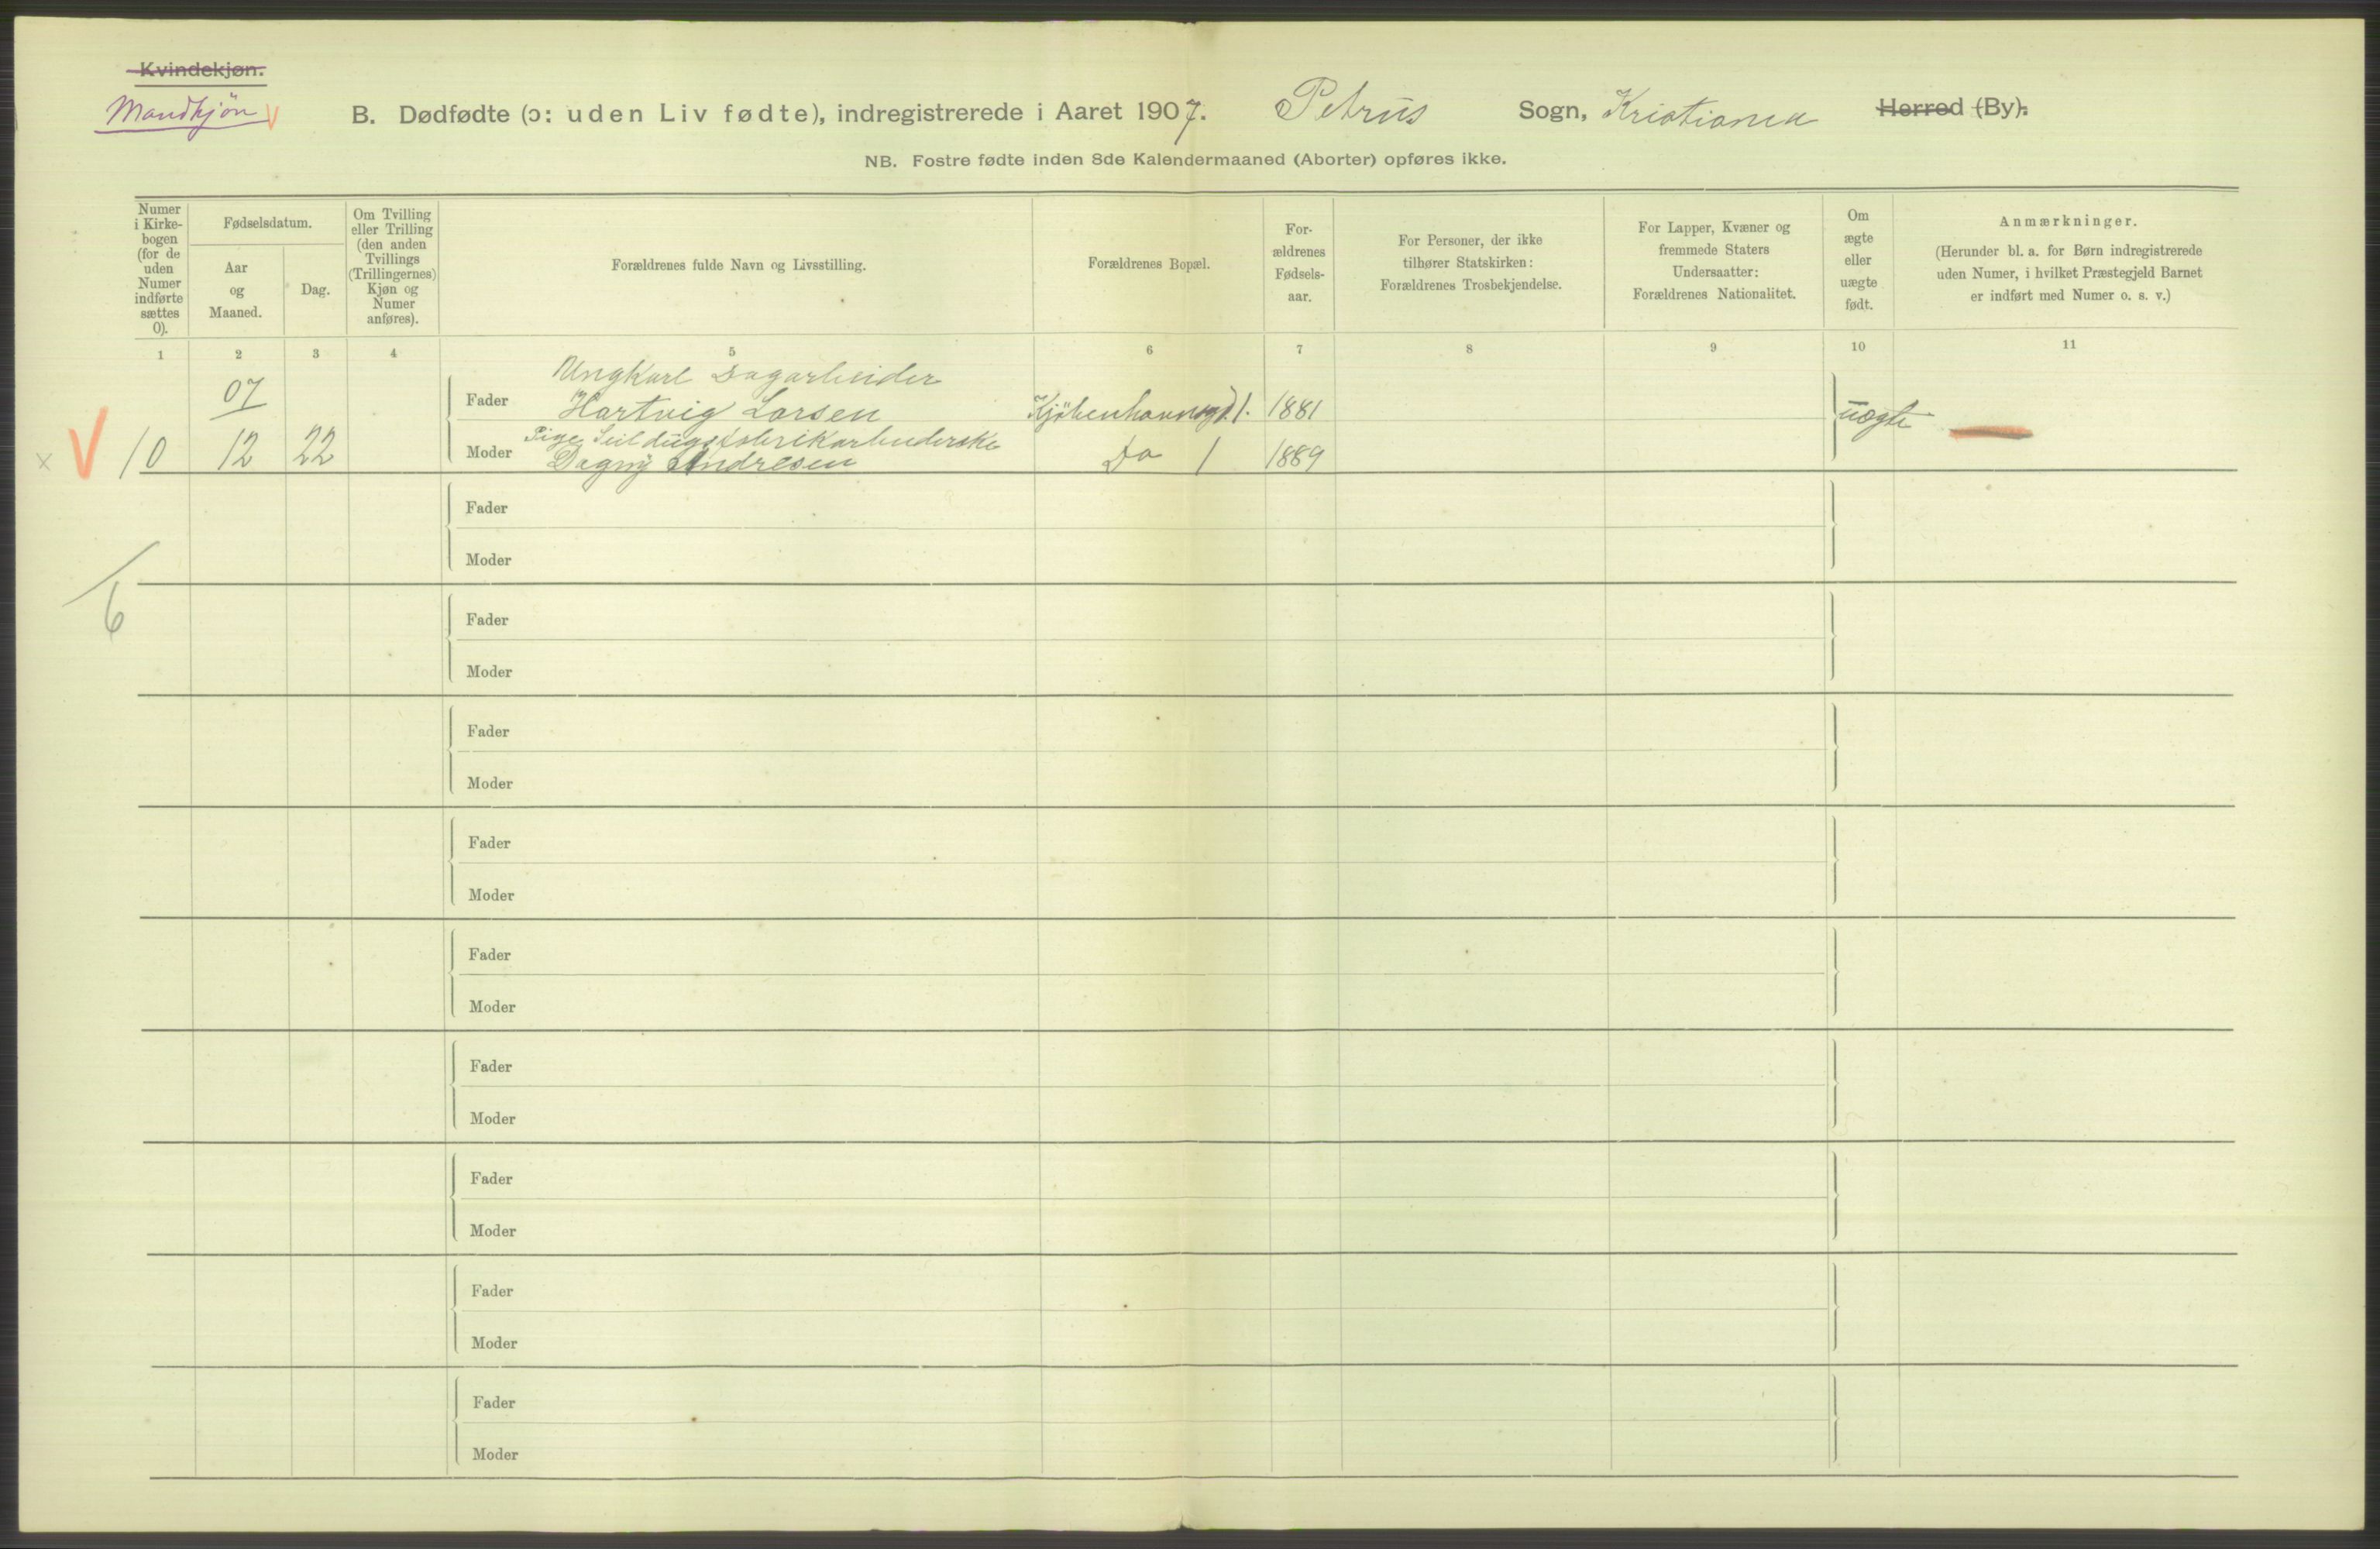 Kvindekjøn.
Mandkjøn V
B. Dødfødte (ɔ: uden Liv fødte), indregistrerede i Aaret 1907. Petrus Sogn, Kristiania Herred (By).
NB. Fostre fødte inden 8de Kalendermaaned (Aborter) opføres ikke.
Numer i Kirke-bogen (for de uden Numer indførte sættes 0).
Fødselsdatum.
Aar og Maaned.
Dag.
Om Tvilling eller Trilling (den anden Tvillings (Trillingernes) Kjøn og Numer anføres).
Forældrenes fulde Navn og Livsstilling.
Forældrenes Bopæl.
For-ældrenes Fødsels-aar.
For Personer, der ikke tilhører Statskirken: Forældrenes Trosbekjendelse.
For Lapper, Kvæner og fremmede Staters Undersaatter: Forældrenes Nationalitet.
Om ægte eller uægte født.
Anmærkninger.
(Herunder bl. a. for Børn indregistrerede uden Numer, i hvilket Præstegjeld Barnet er indført med Numer o. s. v.)
1 2 3 4 5 6 7 8 9 10 11
Ungkarl Dagarbeider
07 Fader Hartvig Larsen Kjöbenhavnsgd. 1. 1881 uægte
Pige, Seildugsfabrikarbeiderske
V 10 12 22 Moder Dagny Andresen Do 1 1889
Fader
Moder
6
Fader
Moder
Fader
Moder
Fader
Moder
Fader
Moder
Fader
Moder
Fader
Moder
Fader
Moder
Fader
Moder